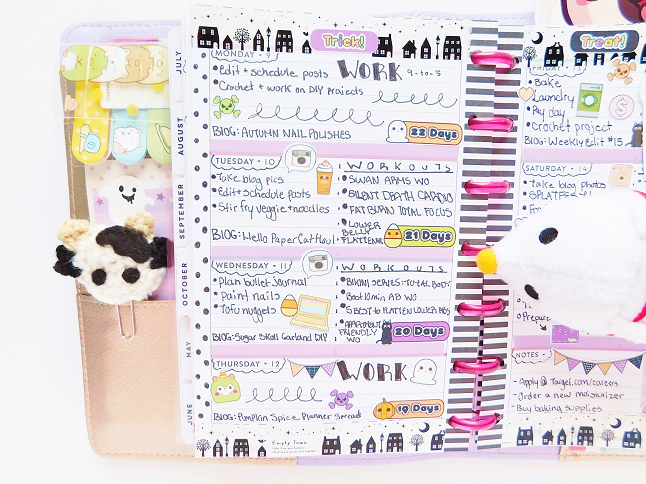 JULY
AUGUST
SEPTEMBER
OCTOBER
MAY
JUNE
Trick!
MONDAY • 9
• Edit + schedule posts
• Crochet + work on DIY projects
WORK 9-to-5
BLOG: AUTUMN NAIL POLISHES
22 Days
TUESDAY • 10
• Take blog pics
• Edit + schedule posts
• Stir fry veggie + noodles
BLOG: Hello Paper Cat Haul
WORKOUTS
• SWAN ARMS WO
• SILENT DEATH CARDIO
• FAT BURN TOTAL FOCUS
• LOWER
BELLY
21 Days
WEDNESDAY • 11
• Plan bullet journal
• Paint nails
• Tofu nuggets
BLOG: Sugar Skull Garland DIY
WORKOUTS
• BIKINI SERIES: TOTAL BODY
• 10 min AB WO
• 5 BEST to FLATTEN LOWER ABS
• APARTMENT
FRIENDLY
WO
20 Days
THURSDAY • 12
WORK
BLOG: Pumpkin Spice Planner Spreads
19 Days
Empty Town
Treat!
FRIDAY
• Bake
• Laundry
• Pay day
• Crochet project
BLOG: Weekly Edit #15
SATURDAY • 14
• Take blog photos
Prepare
NOTES
• Order a new moisturizer
• Buy baking supplies